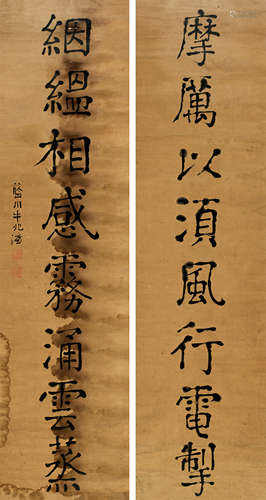 摩厲以須風行電掣
絪縕相感霧涌雲蒸
牛兆濂